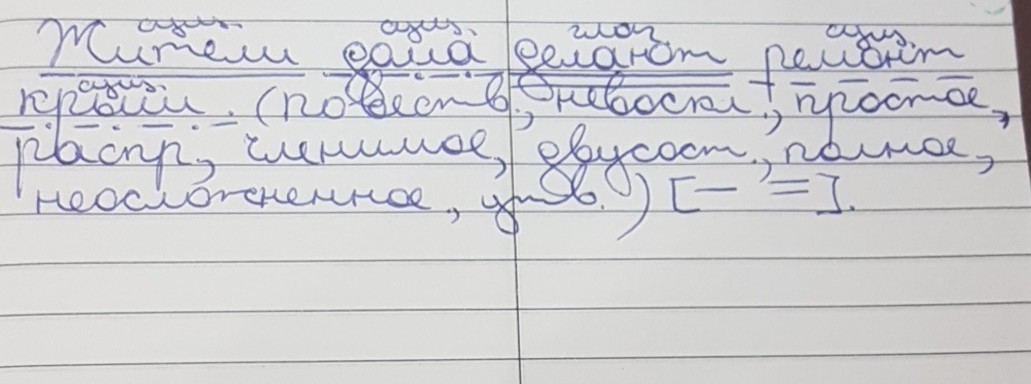 сущ. сущ. глаг. сущ.
Жители дома делают ремонт
сущ.
крыши. (повеств., невоскл., простое,
распр., членимое, двусост., полное,
неосложненное, утв.) [— =].